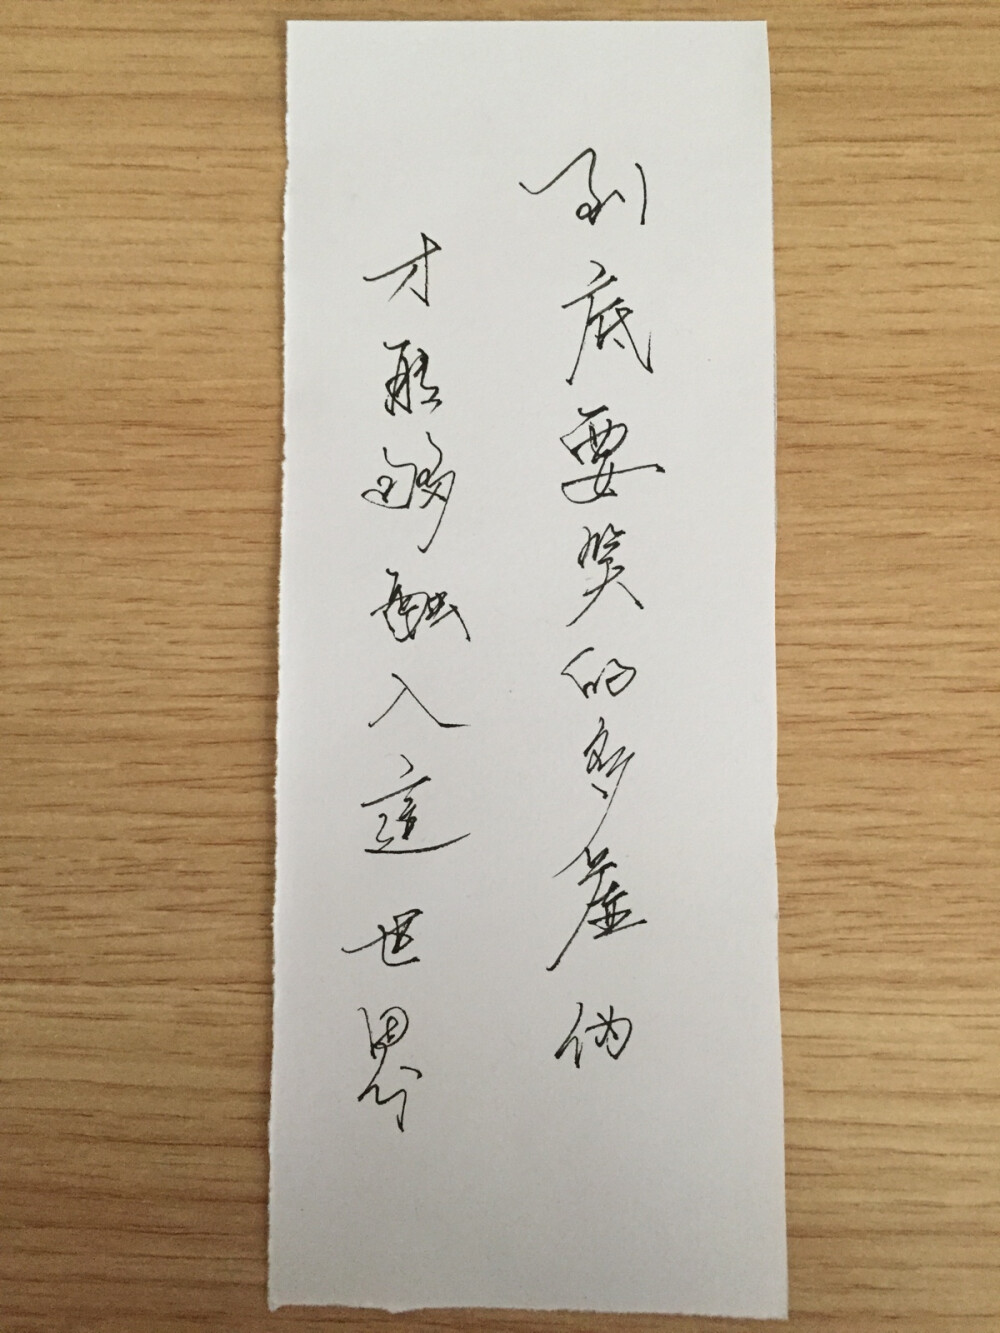 到底要笑的多虚伪
才能够融入這世界